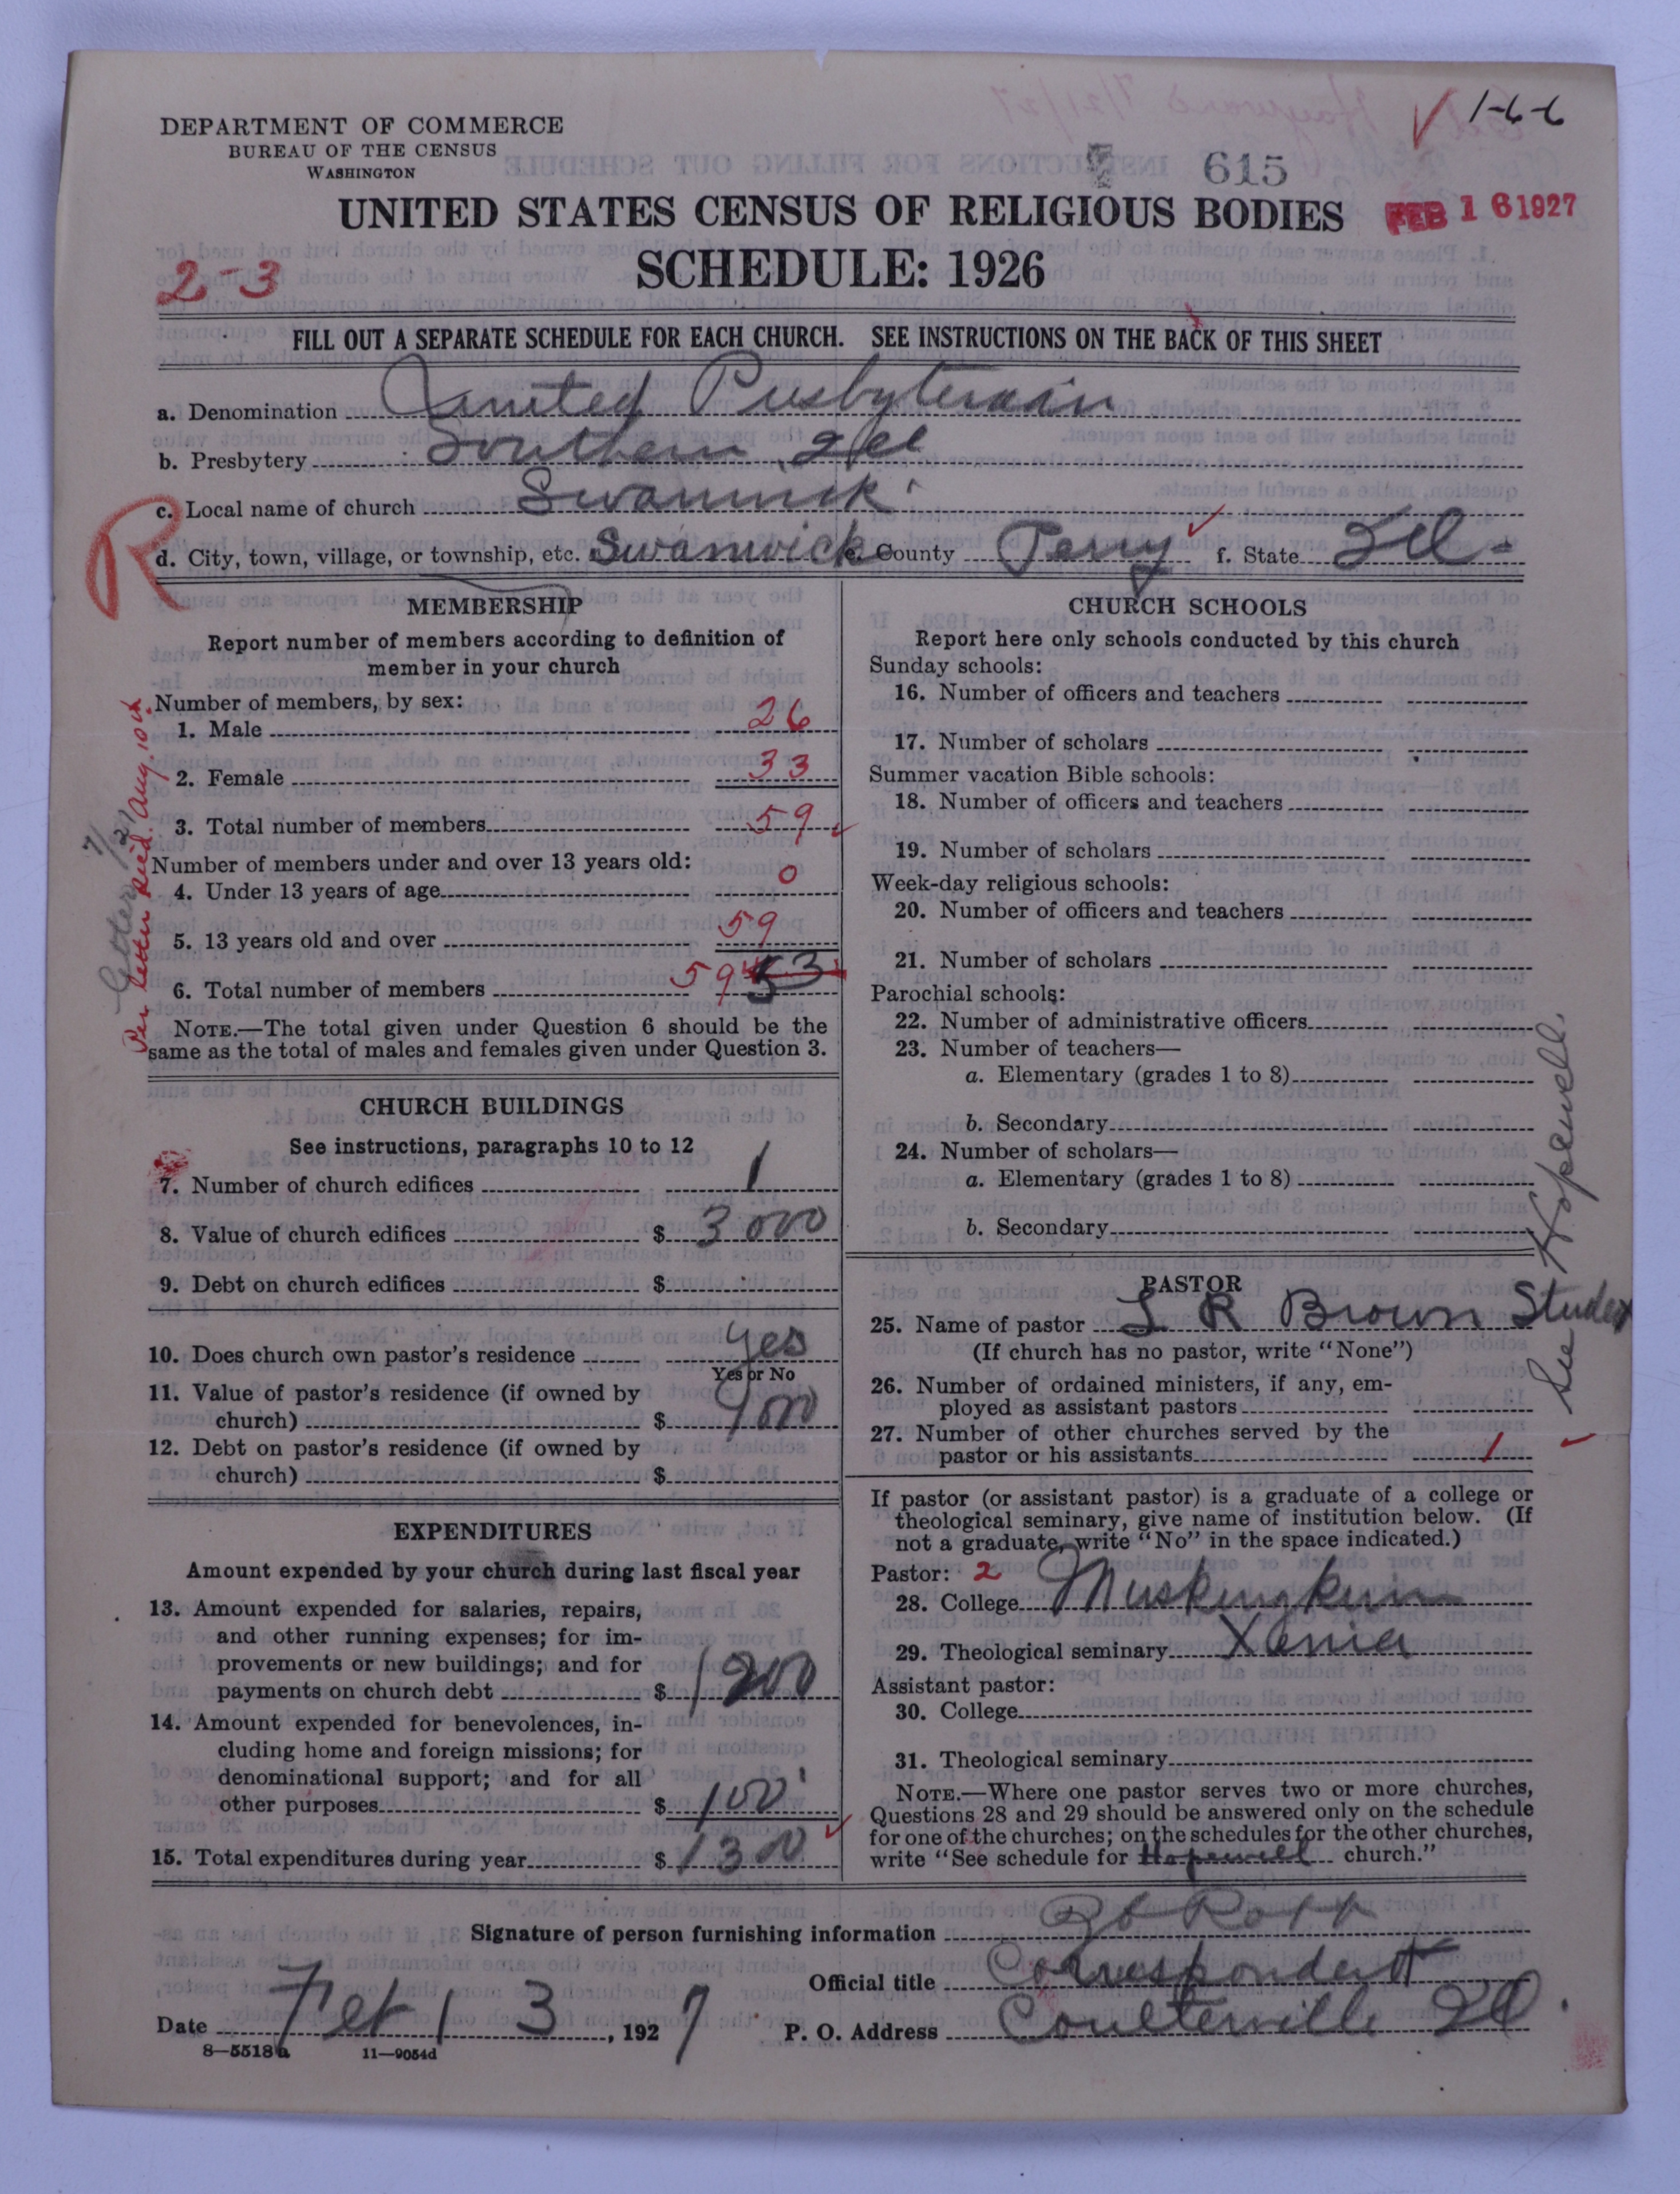 1-6-6
DEPARTMENT OF COMMERCE
BUREAU OF THE CENSUS
WASHINGTON
615
UNITED STATES CENSUS OF RELIGIOUS BODIES
FEB 16 1927
SCHEDULE: 1926
2-3
FILL OUT A SEPARATE SCHEDULE FOR EACH CHURCH. SEE INSTRUCTIONS ON THE BACK OF THIS SHEET
a. Denomination United Presbyterain
b. Presbytery Southern Ill
c. Local name of church Swanwick
R
d. City, town, village, or township, etc. Swanwick e. County Perry f. State Ill-
MEMBERSHIP
Report number of members according to definition of
member in your church
Number of members, by sex:
1. Male 26
2. Female 33
3. Total number of members 59
Number of members under and over 13 years old:
4. Under 13 years of age 0
5. 13 years old and over 59
6. Total number of members 59
NOTE.—The total given under Question 6 should be the
same as the total of males and females given under Question 3.
Per letter Recd. Aug. 10th.
7/21
CHURCH BUILDINGS
See instructions, paragraphs 10 to 12
7. Number of church edifices 1
8. Value of church edifices $ 3000
9. Debt on church edifices $
10. Does church own pastor's residence yes
Yes or No
11. Value of pastor's residence (if owned by
church) $
12. Debt on pastor's residence (if owned by
church) $
EXPENDITURES
Amount expended by your church during last fiscal year
13. Amount expended for salaries, repairs,
and other running expenses; for im-
provements or new buildings; and for
payments on church debt $ 1200
14. Amount expended for benevolences, in-
cluding home and foreign missions; for
denominational support; and for all
other purposes $ 100
15. Total expenditures during year $ 1300
CHURCH SCHOOLS
Report here only schools conducted by this church
Sunday schools:
16. Number of officers and teachers
17. Number of scholars
Summer vacation Bible schools:
18. Number of officers and teachers
19. Number of scholars
Week-day religious schools:
20. Number of officers and teachers
21. Number of scholars
Parochial schools:
22. Number of administrative officers
23. Number of teachers—
a. Elementary (grades 1 to 8)
b. Secondary
24. Number of scholars—
a. Elementary (grades 1 to 8)
b. Secondary
See Hopewell.
PASTOR
25. Name of pastor L R Brown Student
(If church has no pastor, write "None")
26. Number of ordained ministers, if any, em-
ployed as assistant pastors
27. Number of other churches served by the
pastor or his assistants 1
If pastor (or assistant pastor) is a graduate of a college or
theological seminary, give name of institution below. (If
not a graduate, write "No" in the space indicated.)
Pastor: 2
28. College Muskingkum
29. Theological seminary Xenia
Assistant pastor:
30. College
31. Theological seminary
NOTE.—Where one pastor serves two or more churches,
Questions 28 and 29 should be answered only on the schedule
for one of the churches; on the schedules for the other churches,
write "See schedule for Hopewell church."
Signature of person furnishing information
Official title Correspondent
Date Feb 13, 1927 P. O. Address Coulterville Ill.
8—5518a 11—9054d